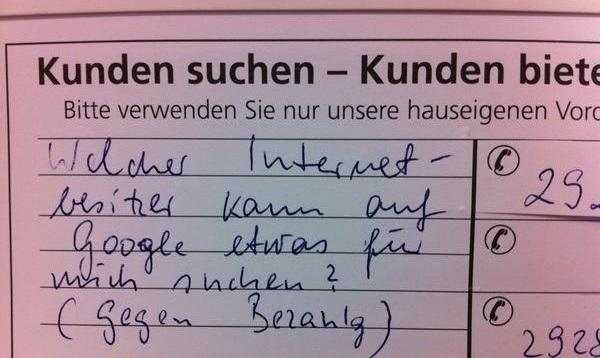 Kunden suchen – Kunden biete
Bitte verwenden Sie nur unsere hauseigenen Vord
Welcher Internet-
besitzer kann auf
Google etwas für
mich suchen?
(Gegen Bezahlg)
29
2928